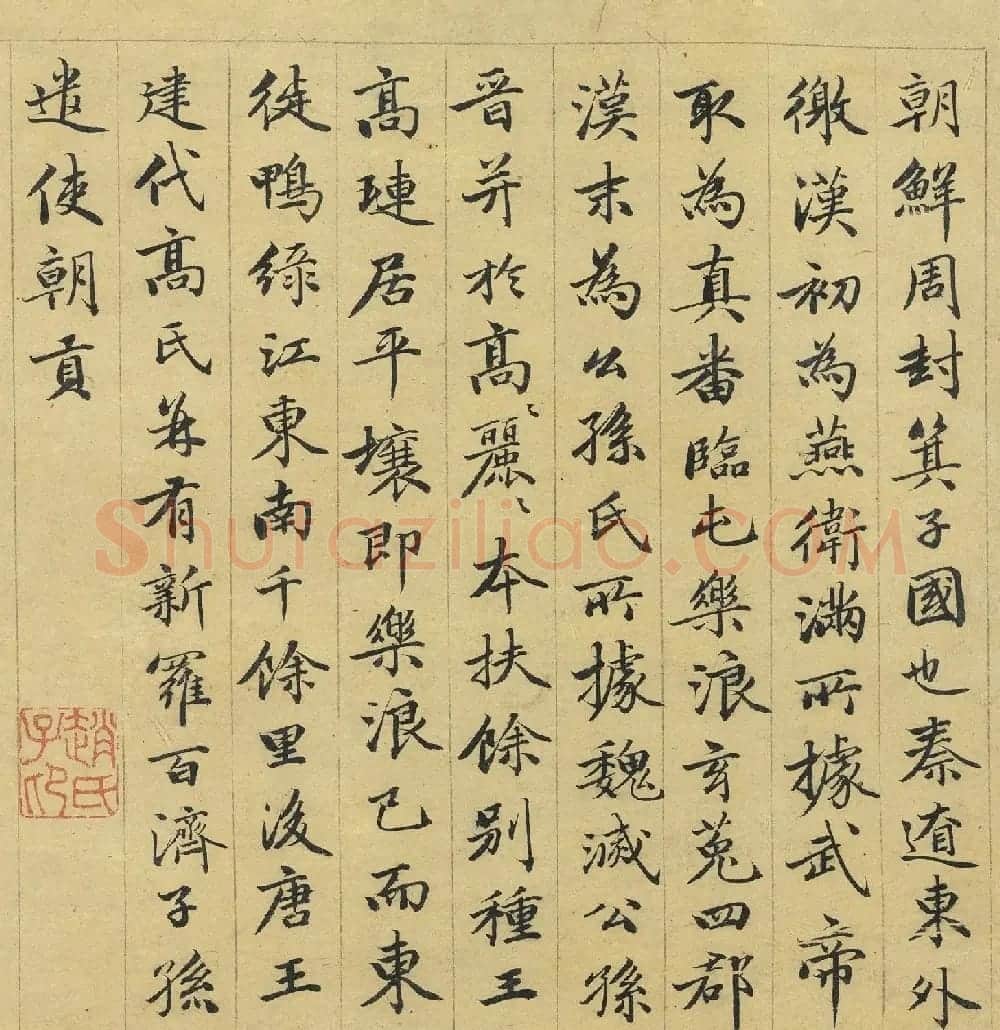 朝鮮周封箕子國也秦遼東外
徼漢初為燕衛滿所據武帝
取為真番臨屯樂浪玄菟四郡
漢末為公孫氏所據魏滅公孫
晉并於高〻麗〻本扶餘別種王
高璉居平壤即樂浪已而東
徙鴨綠江東南千餘里後唐王
建代高氏并有新羅百濟子孫
遣使朝貢
趙氏子印
Shufaziliao.COM